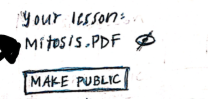 your lesson:
Mitosis.PDF
MAKE PUBLIC